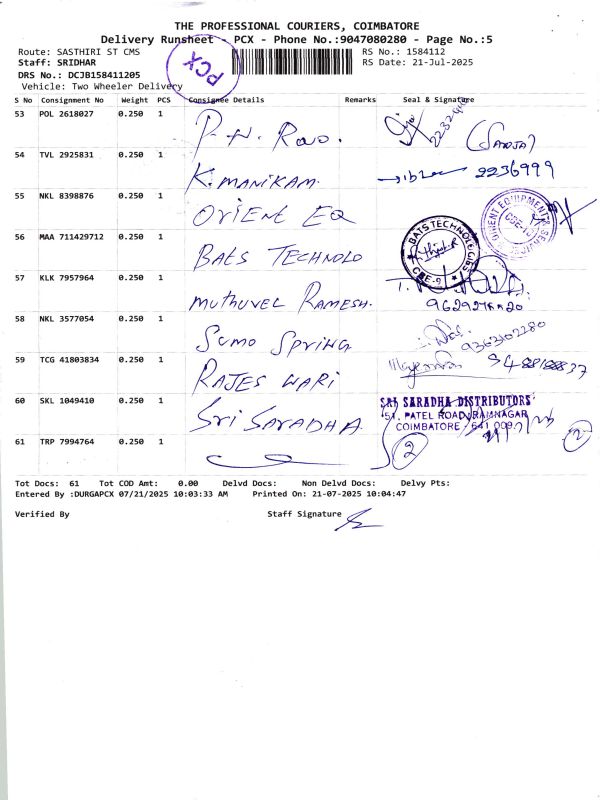 THE PROFESSIONAL COURIERS, COIMBATORE
Delivery Runsheet - PCX - Phone No.:9047080280 - Page No.:5
Route: SASTHIRI ST CMS
RS No.: 1584112
Staff: SRIDHAR
RS Date: 21-Jul-2025
DRS No.: DCJB158411205
Vehicle: Two Wheeler Delivery
PCX
S No Consignment No Weight PCS Consignee Details Remarks Seal & Signature
53 POL 2618027 0.250 1 P.N. Rao. (SANDJA)
54 TVL 2925831 0.250 1 K. MANIKAM. 2236999
55 NKL 8398876 0.250 1 ORIENT EQ
56 MAA 711429712 0.250 1 BATS TECHNOLO
BATS TECHNOLOGIES
CBE-9
57 KLK 7957964 0.250 1 MUTHUVEL RAMESH.
58 NKL 3577054 0.250 1 Sumo SPRING 9363102280
59 TCG 41803834 0.250 1 RAJES WARI
60 SKL 1049410 0.250 1 SRI SARADHA
SRI SARADHA DISTRIBUTORS
51, PATEL ROAD, RAMNAGAR
COIMBATORE - 641 009
61 TRP 7994764 0.250 1
2 2
Tot Docs: 61 Tot COD Amt: 0.00 Delvd Docs: Non Delvd Docs: Delvy Pts:
Entered By :DURGAPCX 07/21/2025 10:03:33 AM Printed On: 21-07-2025 10:04:47
Verified By Staff Signature